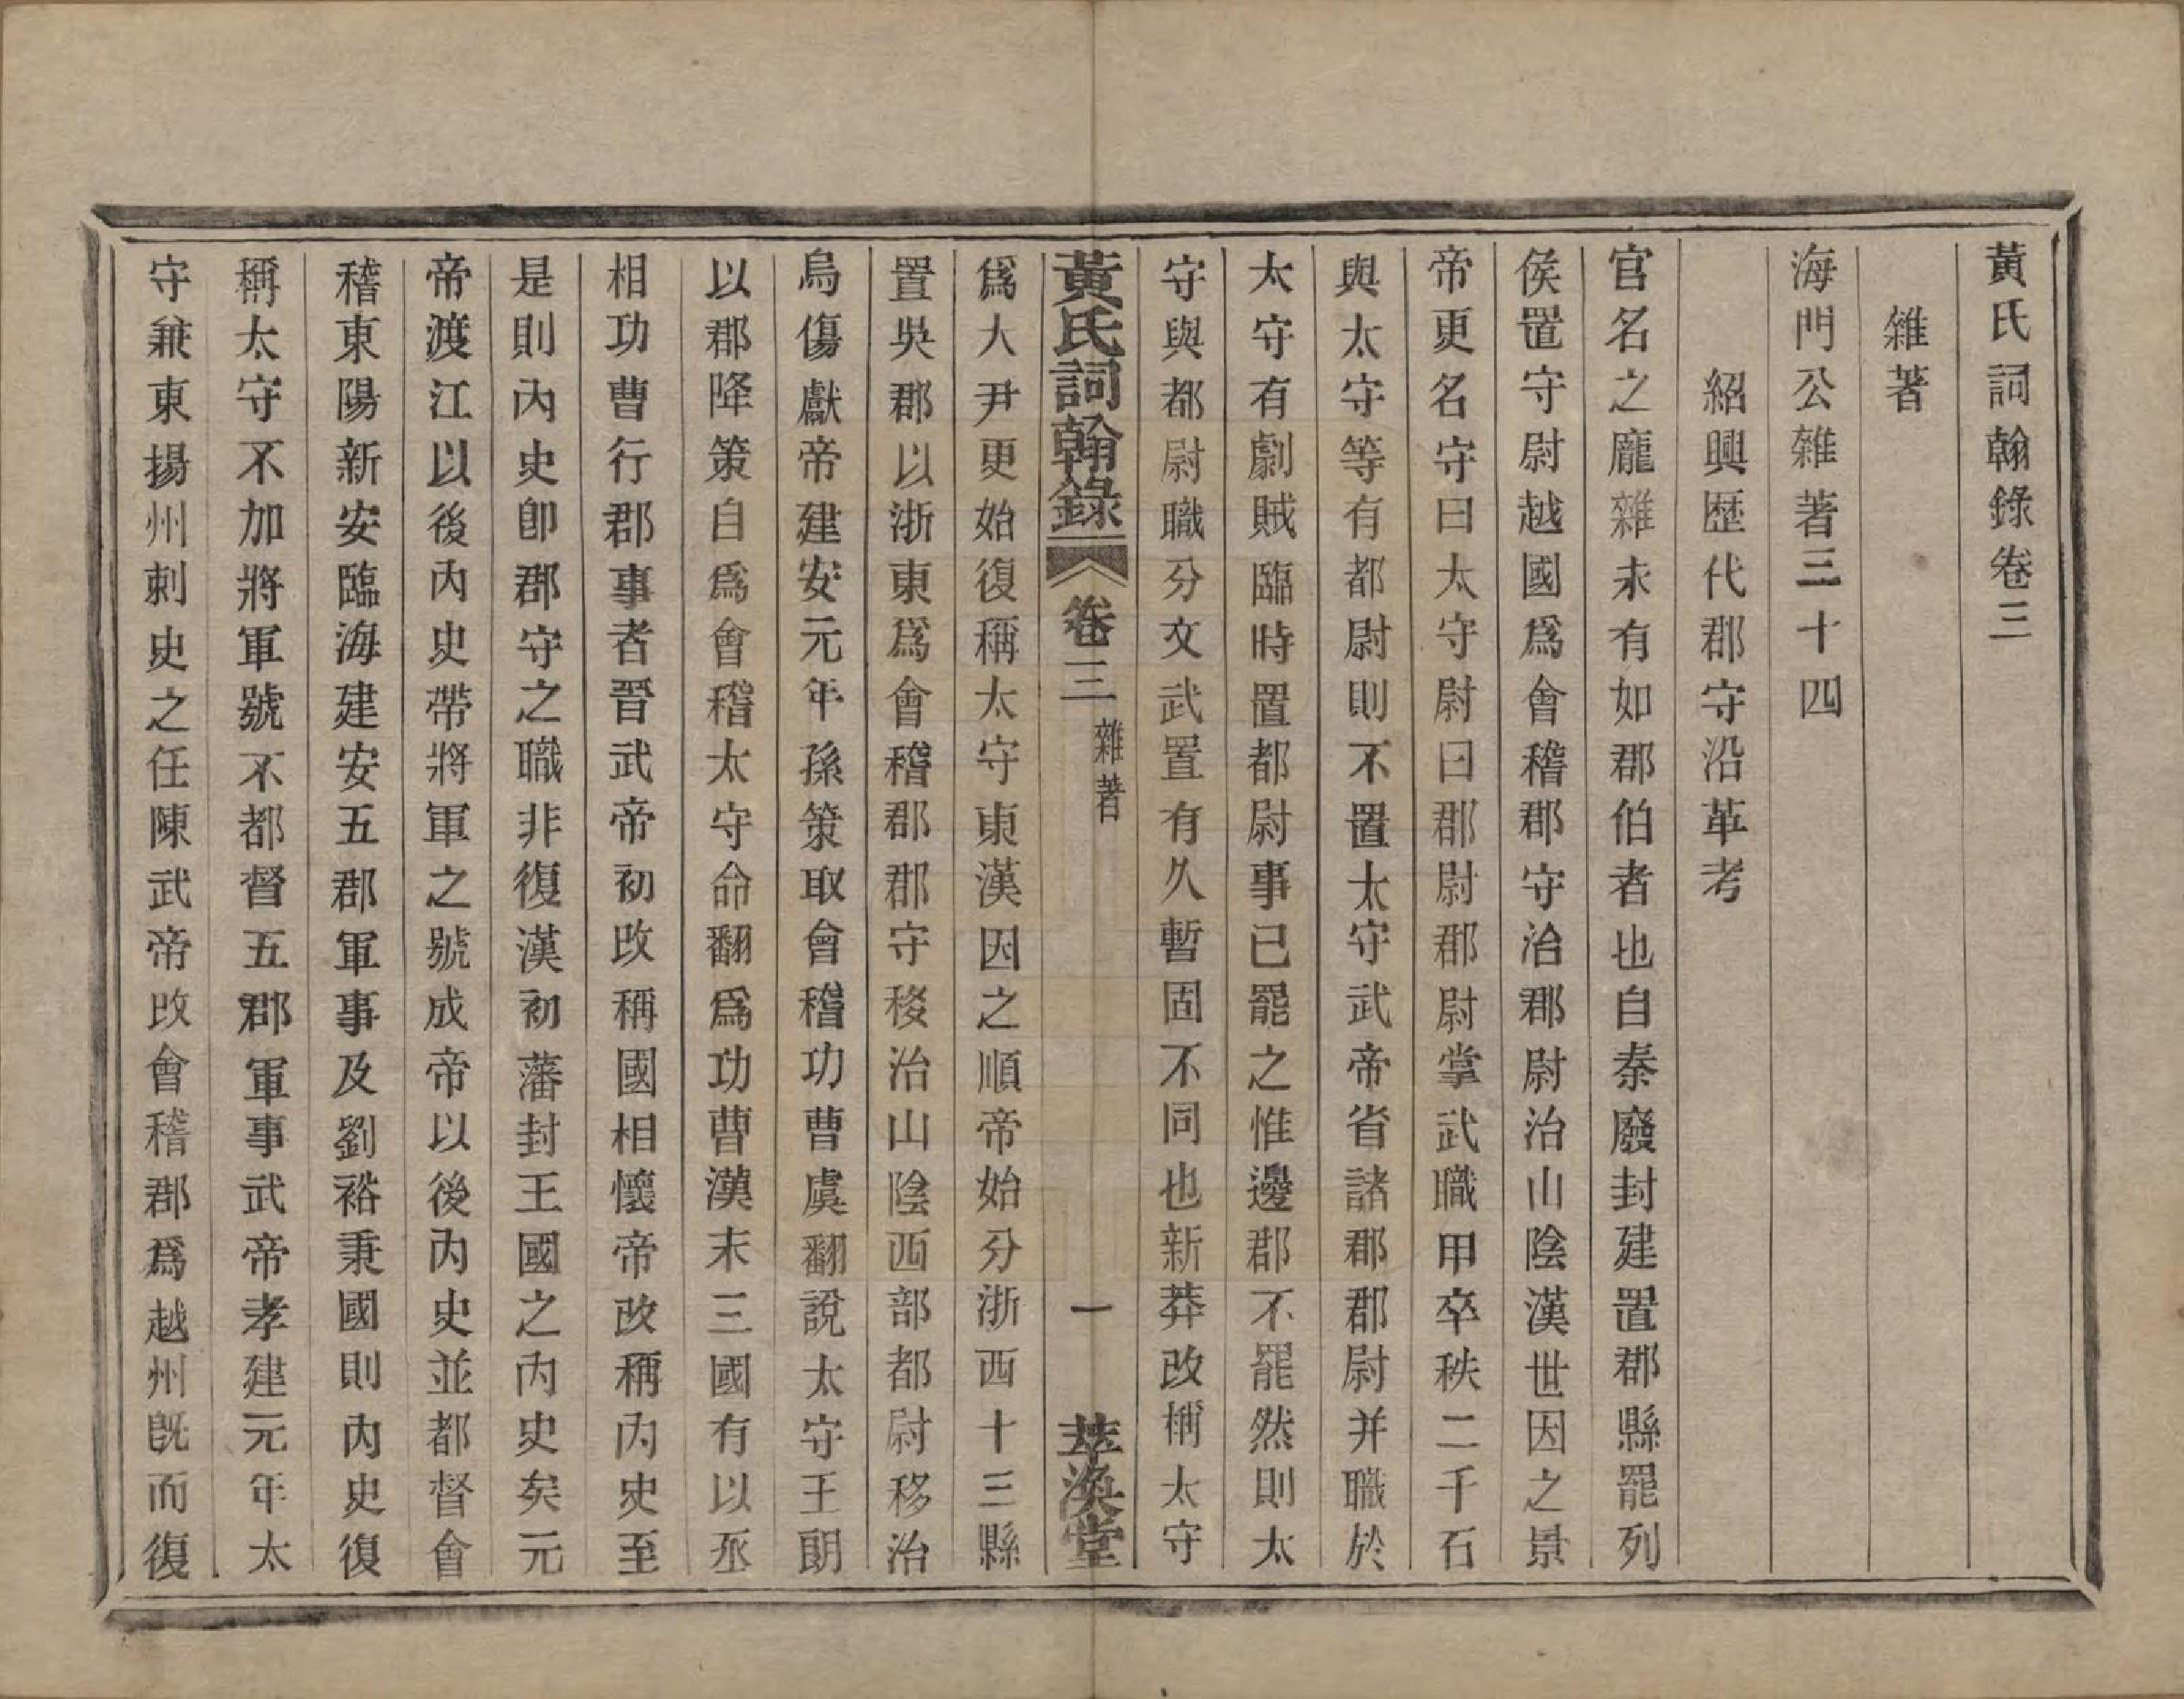 黃氏詞翰錄卷三
雜著
海門公雜著三十四
紹興歷代郡守沿革考
官名之龐雜未有如郡伯者也自秦廢封建置郡縣罷列
侯置守尉越國爲會稽郡守治郡尉治山陰漢世因之景
帝更名守曰太守尉曰郡尉郡尉掌武職甲卒秩二千石
與太守等有都尉則不置太守武帝省諸郡郡尉并職於
太守有劇賊臨時置都尉事已罷之惟邊郡不罷然則太
守與都尉職分文武置有久暫固不同也新莽改稱太守
黃氏詞翰錄 卷三 雜著 一 萃渙堂
爲大尹更始復稱太守東漢因之順帝始分浙西十三縣
置吳郡以浙東爲會稽郡郡守移治山陰西部都尉移治
烏傷獻帝建安元年孫策取會稽功曹虞翻說太守王朗
以郡降策自爲會稽太守命翻爲功曹漢末三國有以丞
相功曹行郡事者晉武帝初改稱國相懷帝改稱內史至
是則內史卽郡守之職非復漢初藩封王國之內史矣元
帝渡江以後內史帶將軍之號成帝以後內史並都督會
稽東陽新安臨海建安五郡軍事及劉裕秉國則內史復
稱太守不加將軍號不都督五郡軍事武帝孝建元年太
守兼東揚州刺史之任陳武帝改會稽郡爲越州旣而復